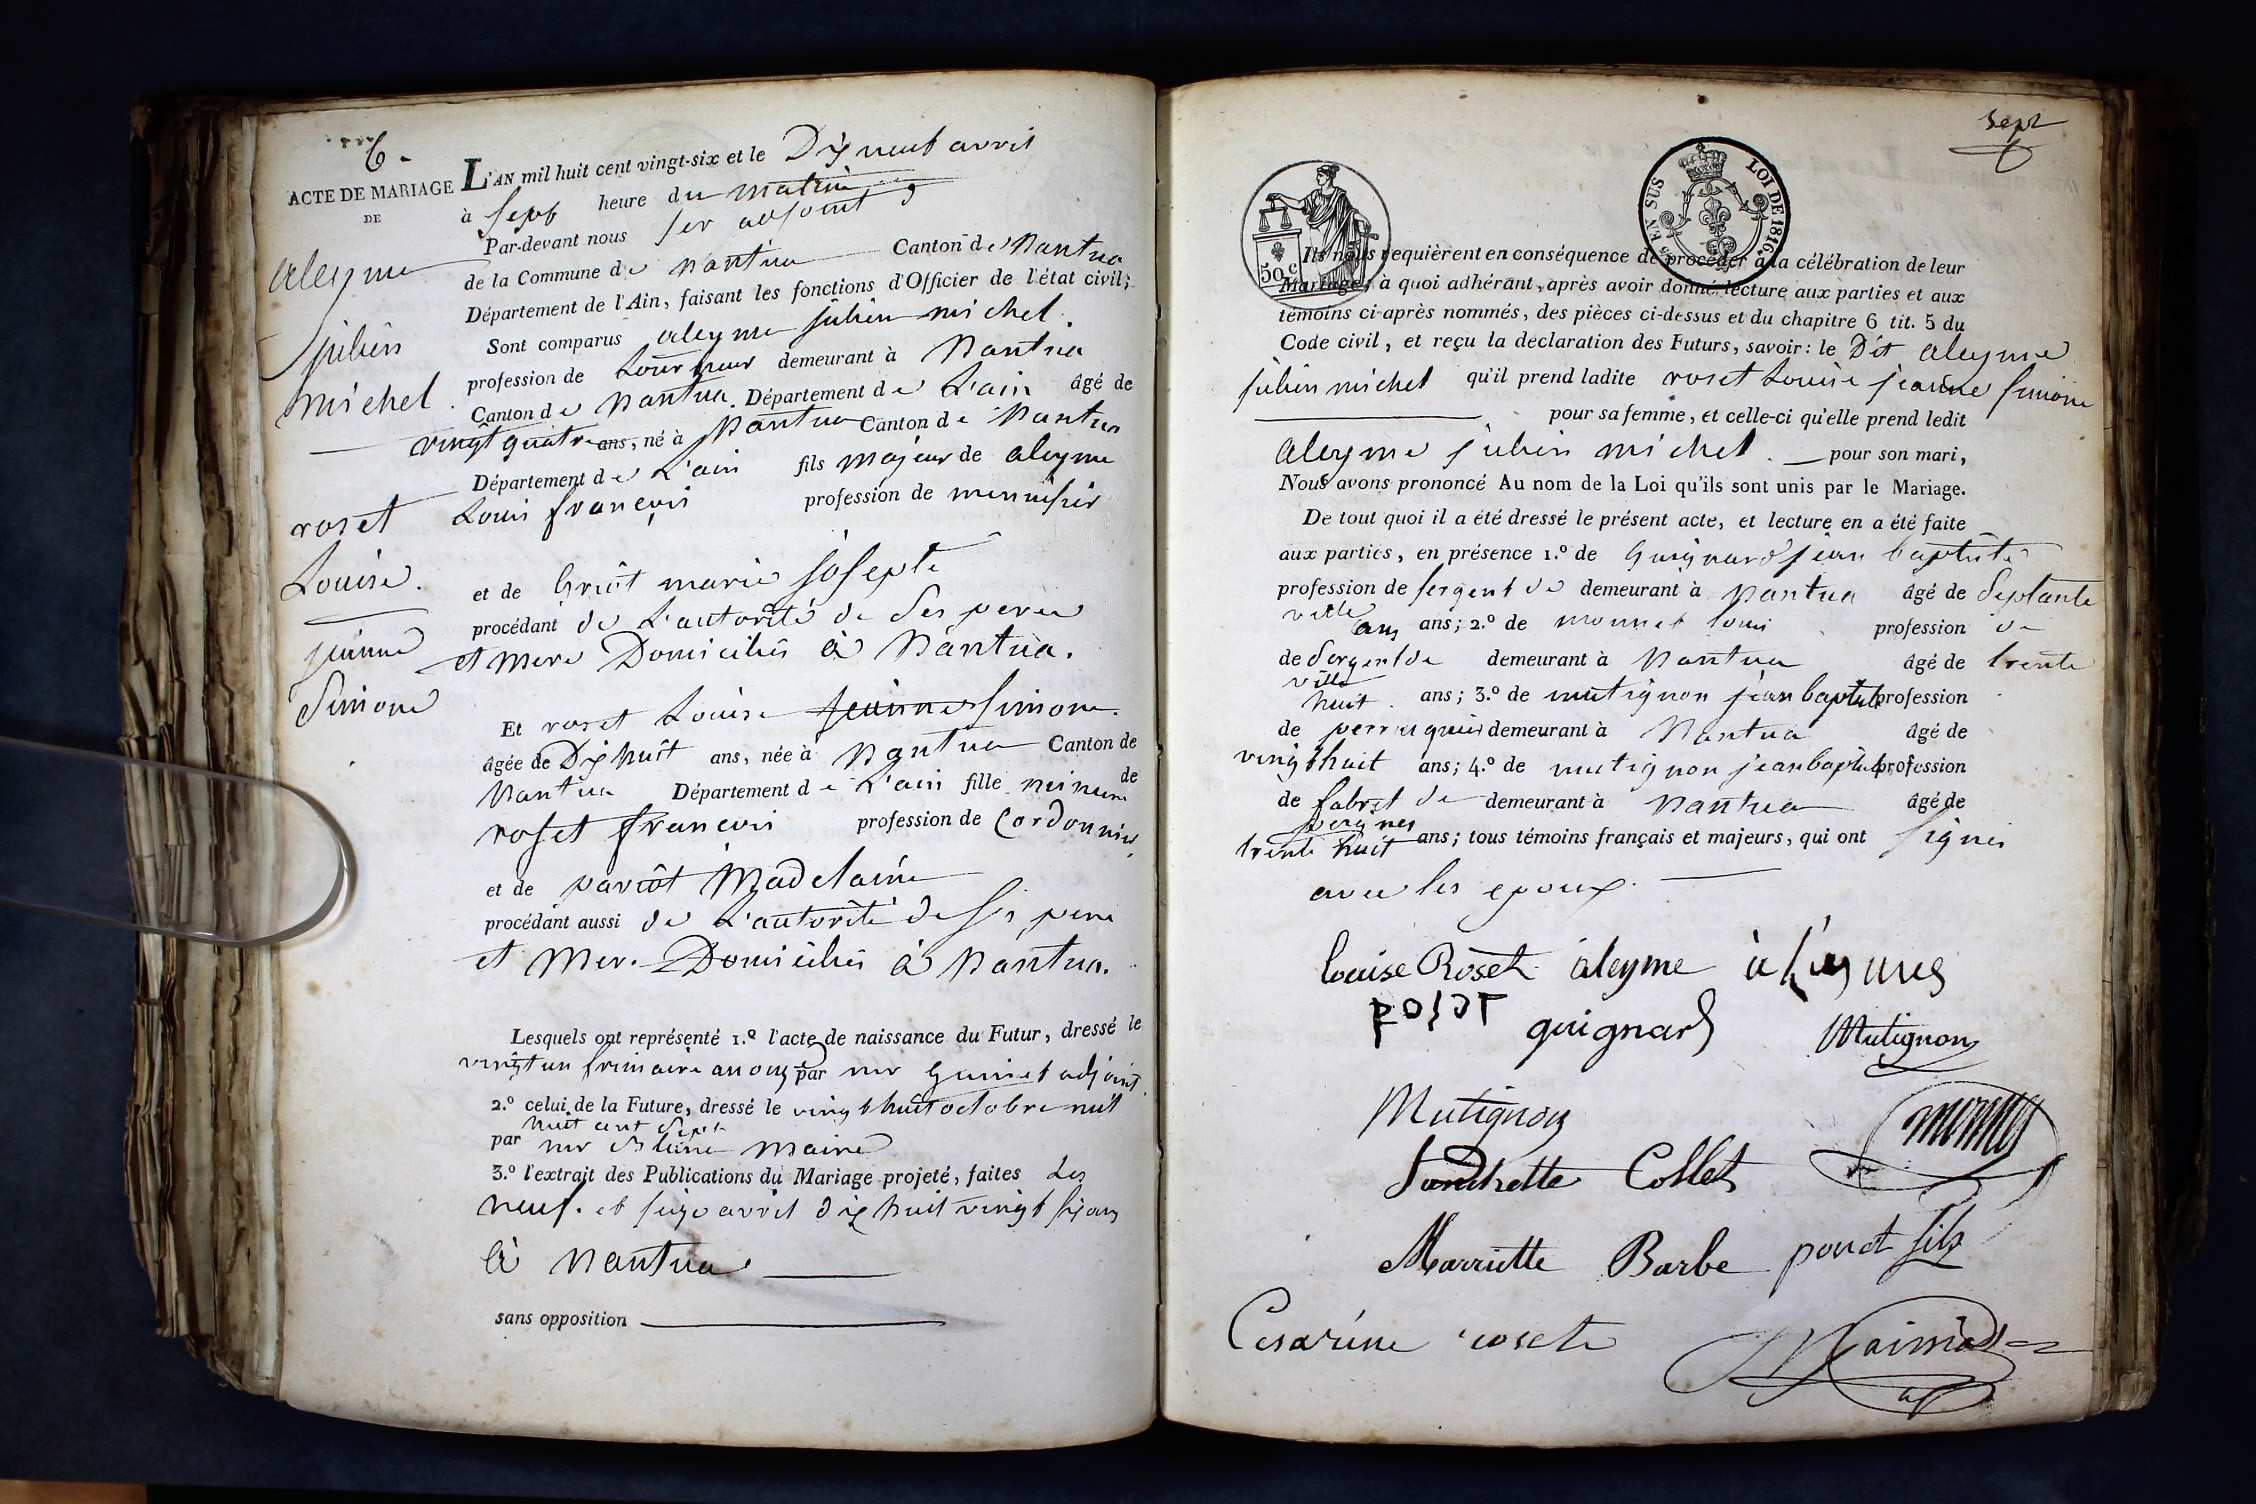 6.
ACTE DE MARIAGE
DE
aleyme
julien
michel
roset
Louise.
jeanne
Simone
L'AN mil huit cent vingt-six et le Dix neuf avril
à sept heure du matin
Par-devant nous 1er adjoint
de la Commune de nantua Canton de Nantua
Département de l'Ain, faisant les fonctions d'Officier de l'état civil;
Sont comparus aleyme julien michel.
profession de tourneur demeurant à Nantua
Canton de Nantua. Département de L'ain âgé de
vingt quatre ans, né à Nantua Canton de Nantua
Département de L'ain fils majeur de aleyme
Louis françois profession de menuisier
et de marie josepte
procédant de L'autorité de Ses pere
et mere Domiciliés à Nantua.
Et roset Louise jeanne Simone.
âgée de Dix huit ans, née à Nantua Canton de
Nantua Département de L'ain fille mineure de
roset françois profession de Cordonnier
et de Madelaine
procédant aussi de L'autorité de Ses pere
et Mere Domiciliés à Nantua.
Lesquels ont représenté 1.º l'acte de naissance du Futur, dressé le
vingt un frimaire an onze par mr adjoint
2.º celui de la Future, dressé le vingt huit octobre mil
huit cent sept
par mr maire
3.º l'extrait des Publications du Mariage projeté, faites Les
neuf. et seize avril dix huit vingt six
à Nantua.
sans opposition
sept
EN SUS
LOI DE 1816.
50 c
Ils nous requièrent en conséquence de procéder à la célébration de leur
Mariage; à quoi adhérant, après avoir donné lecture aux parties et aux
témoins ci-après nommés, des pièces ci-dessus et du chapitre 6 tit. 5 du
Code civil, et reçu la déclaration des Futurs, savoir: le Dit aleyme
julien michel qu'il prend ladite roset Louise jeanne Simone
pour sa femme, et celle-ci qu'elle prend ledit
aleyme julien michel. pour son mari,
Nous avons prononcé Au nom de la Loi qu'ils sont unis par le Mariage.
De tout quoi il a été dressé le présent acte, et lecture en a été faite
aux parties, en présence 1.º de Guignard jean baptiste
profession de sergent de demeurant à Nantua âgé de Septante
ville
ans ans; 2.º de monnet louis profession de
de Sergent de demeurant à Nantua âgé de trente
ville
huit. ans; 3.º de mutignon jean baptiste profession
de perruquier demeurant à Nantua âgé de
vingt huit ans; 4.º de mutignon jean baptiste profession
de fabrct de demeurant à Nantua âgé de
peignes
trente huit ans; tous témoins français et majeurs, qui ont signés
avec les epoux.
louise Roset aleyme
guignard Mutignon
Mutignon
Collet
Marriette Barbe ponct fils
Cesarine rosete